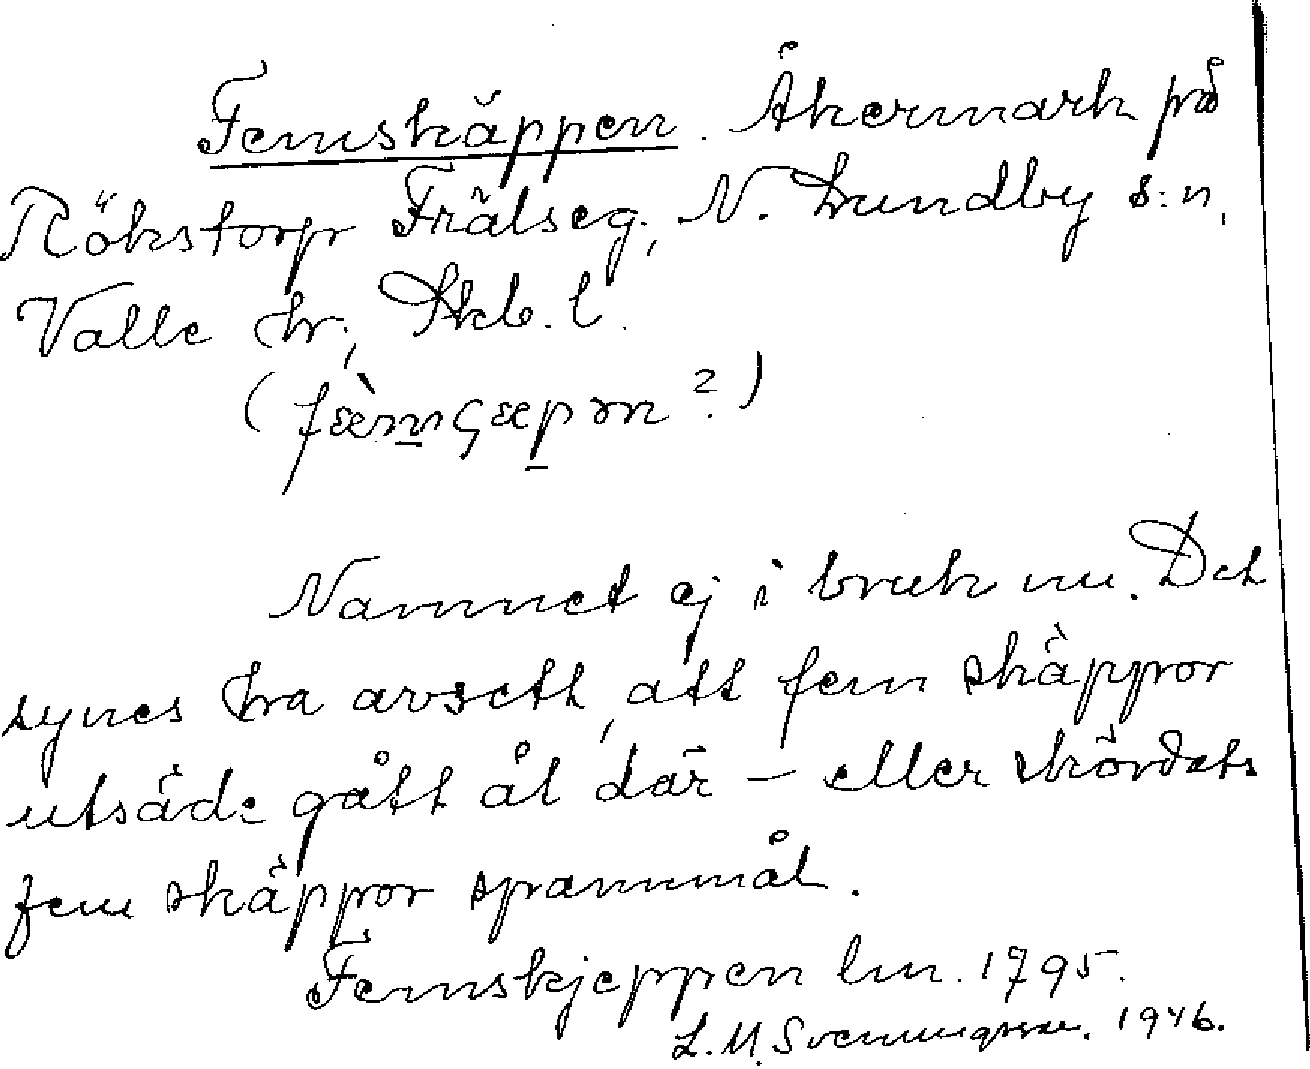 Femskäppen. Åkermark på
Rökstorp Frälseg., N. Lundby s:n,
Valle hr, Skb. l.
(fæ̀mçæpən?)
Namnet ej i bruk nu. Det
synes ha avsett, att fem skäppor
utsäde gått åt där – eller skördats
fem skäppor spannmål.
Femskjeppen lm. 1795.
L. M. Svenungsson. 1946.